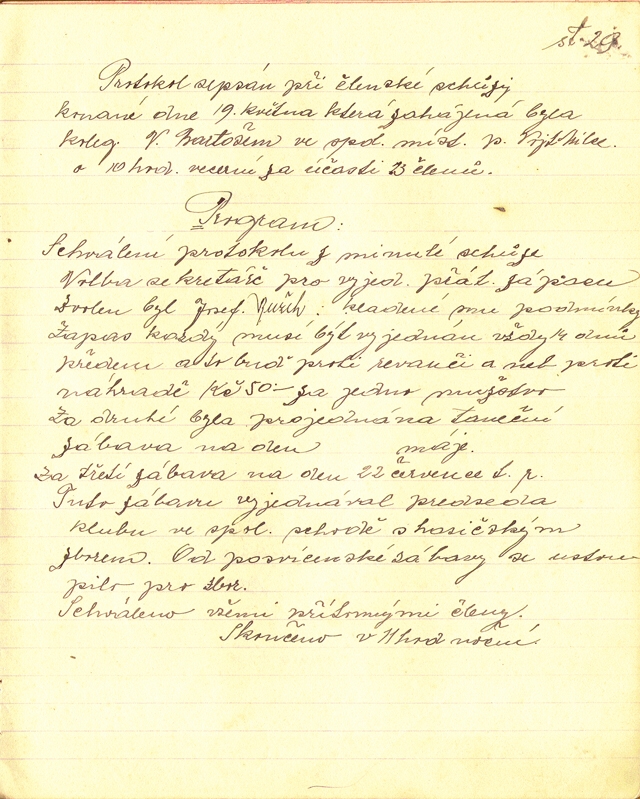 st. 23.
Protokol sepsán při členské schůzy
konané dne 19. května která zahájená byla
koleg. V. Bartošem ve spol. míst. p. Vojt.
o 10 hod. večerní za účasti 23 členů.
Program:
Schválení protokolu z minulé schůze
Volba sekretáře pro vyjed. přát. zápasu
Zvolen byl Josef. : kladené mu podmínky
Zápas každý musí být vyjednán vždy 14 dnů
předem a to buď proti revanči a neb proti
náhradě Kč 50.- za jedno mužstvo
Za druhé byla projednána taneční
zábava na den máje.
Za třetí zábava na den 22 července t. r.
Tuto zábavu vyjednával predseda
klubu ve spol. schodě s hasičským
sborem. Od posvícenské zábavy se ustou
pilo pro sbor.
Schváleno všemi přítomnými členy.
Skončeno v 11 hod noční.